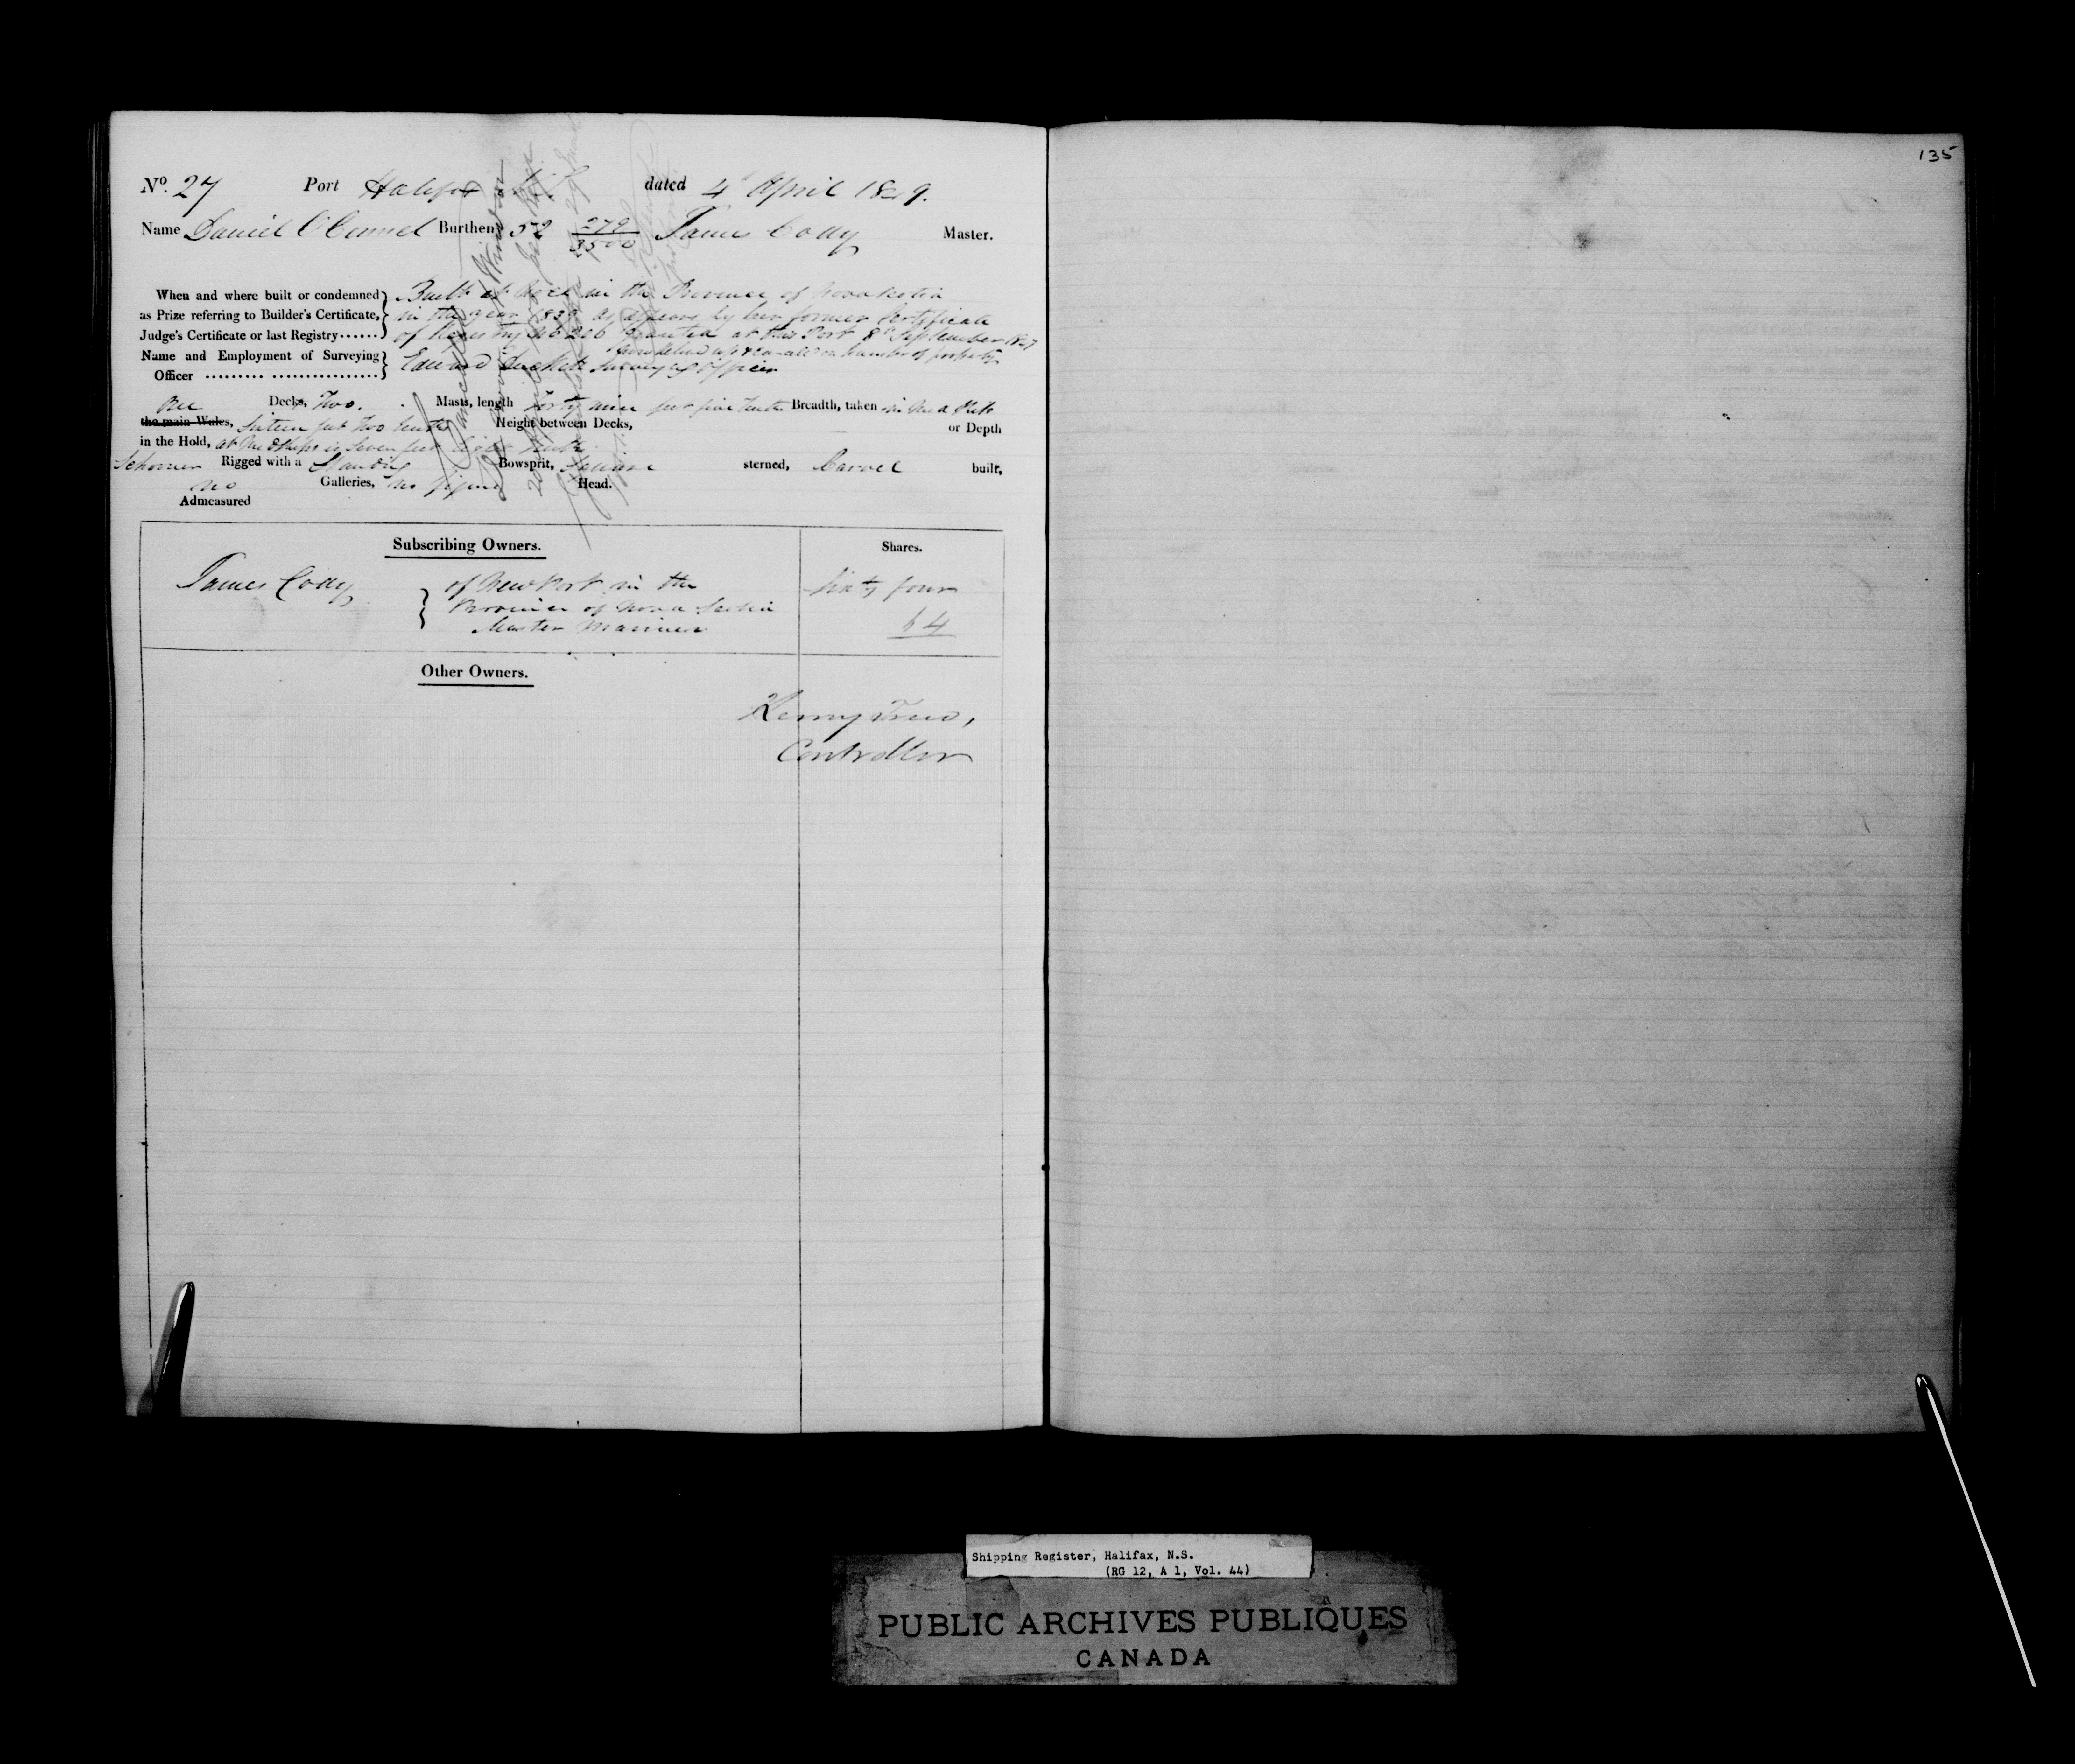 135
No. 27 Port Halifax NS dated 4th April 1849.
Name Daniel O Connel Burthen 52 279/3500 James Cody Master.
When and where built or condemned as Prize referring to Builder's Certificate, Judge's Certificate or last Registry......
Built at in the Province of Nova Scotia
in the year 1839 as appears by her former Certificate
of Registry No 206 Granted at this Port 8th September 1847
now delivered up & cancelled on transfer of property
Name and Employment of Surveying Officer ......... ................
Edward Surveying Officer
One Decks, Two. Masts, length Forty nine feet five tenths Breadth, taken in Midships
the main Wales, Sixteen feet Two tenths Height between Decks, or Depth
in the Hold, at Midships is Seven feet Eight tenths
Schooner Rigged with a Standing Bowsprit, Square sterned, Carvel built,
no Galleries, no figure Head.
Admeasured
Subscribing Owners. Shares.
James Cody of Newport in the Sixty four
Province of Nova Scotia
Master Mariner 64
Other Owners.
Henry Trew,
Controller
Shipping Register, Halifax, N.S.
(RG 12, A 1, Vol. 44)
PUBLIC ARCHIVES PUBLIQUES
CANADA